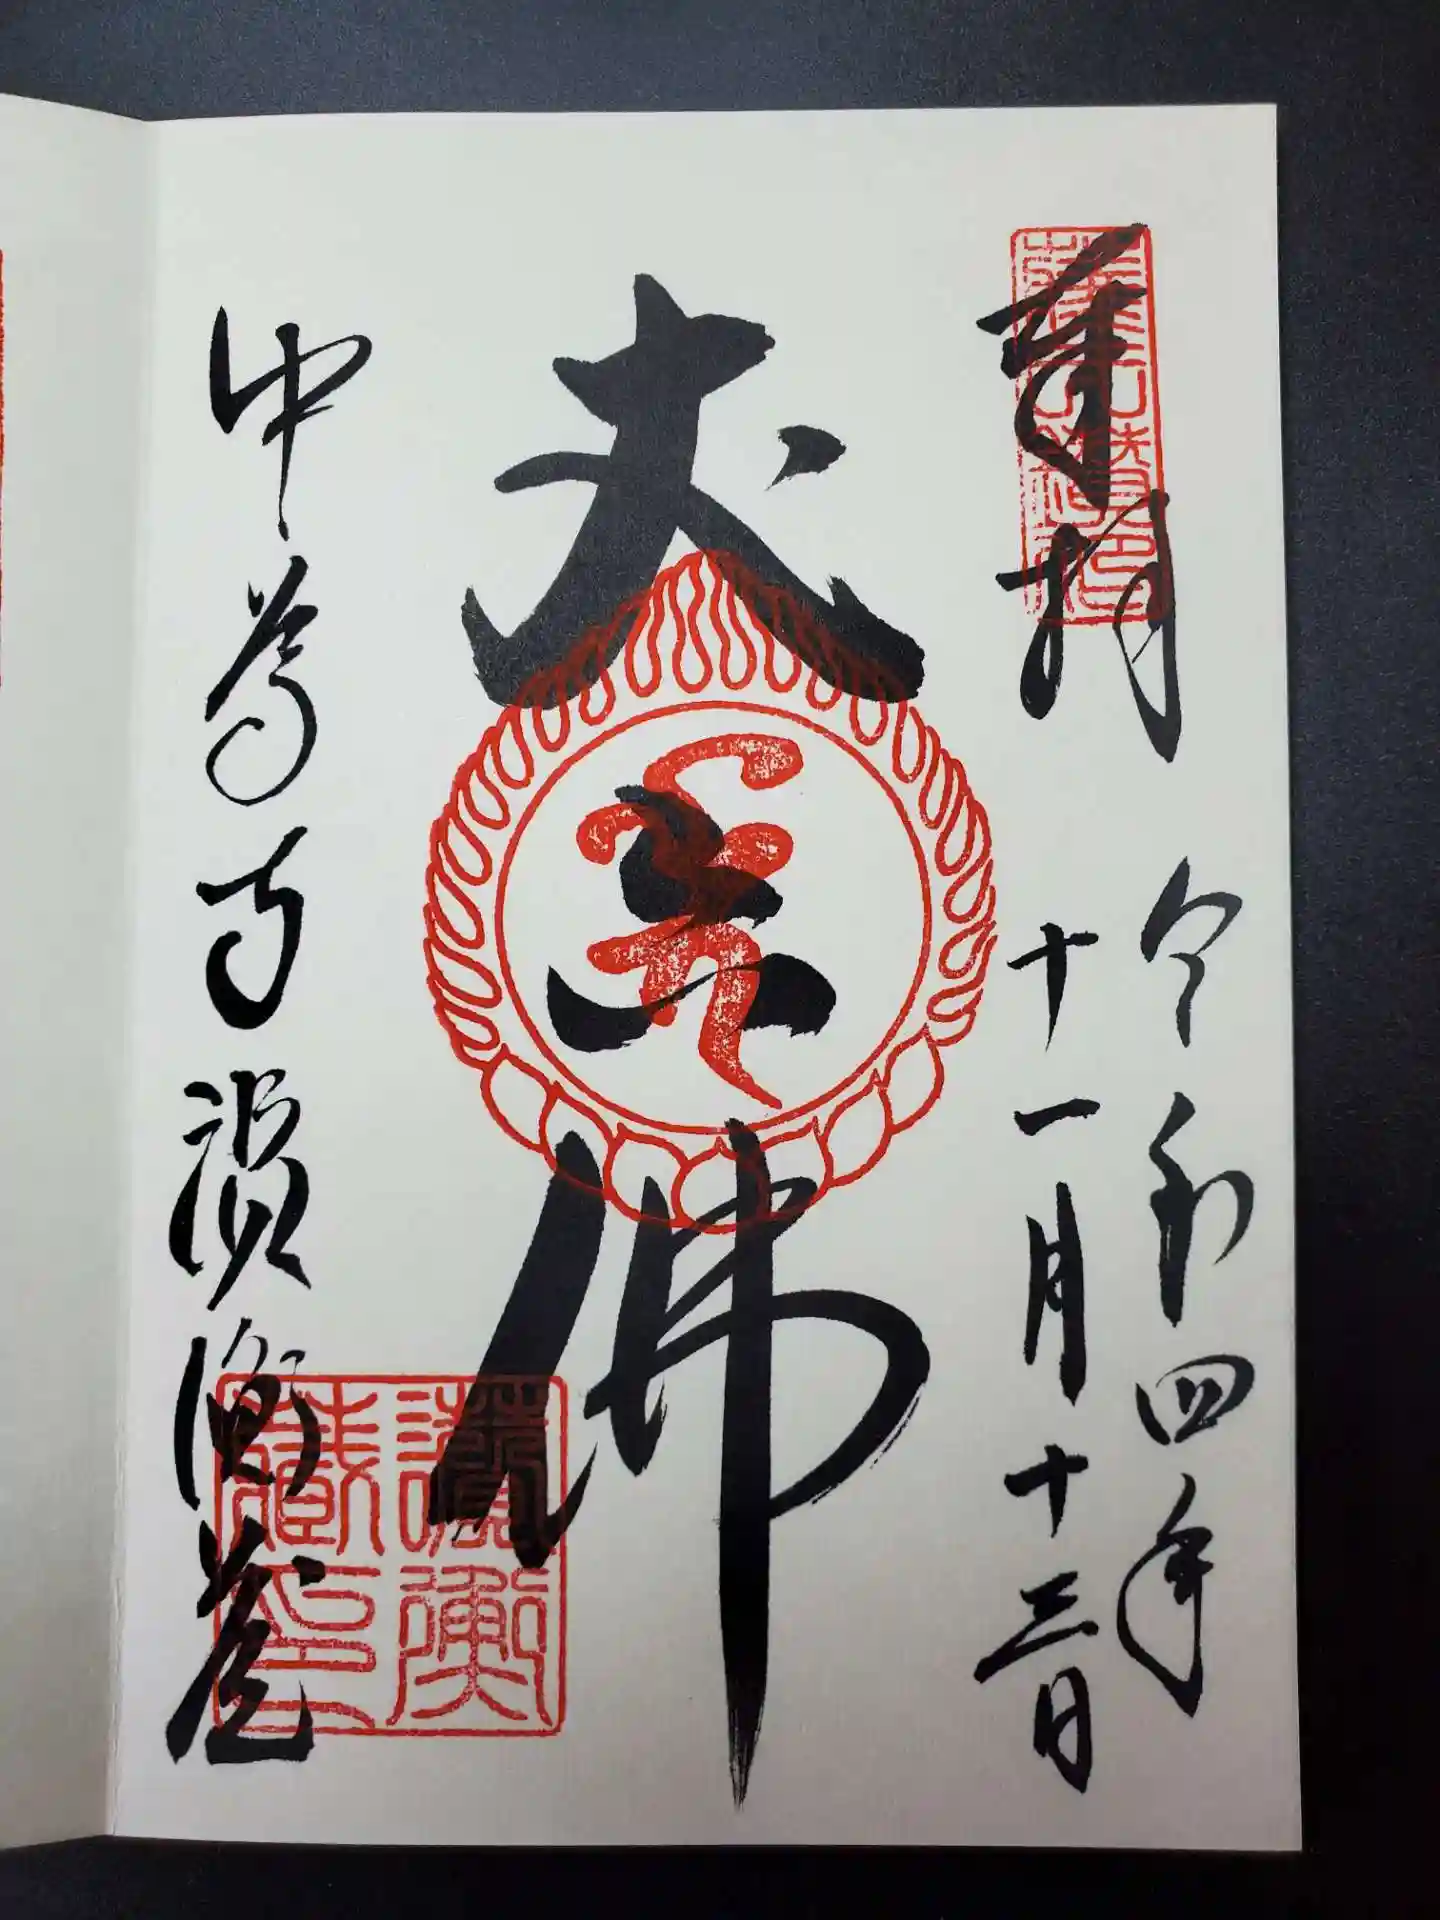 奉拝
令和四年
十一月十三日
丈六佛
中尊寺讃衡蔵
讃衡
蔵印